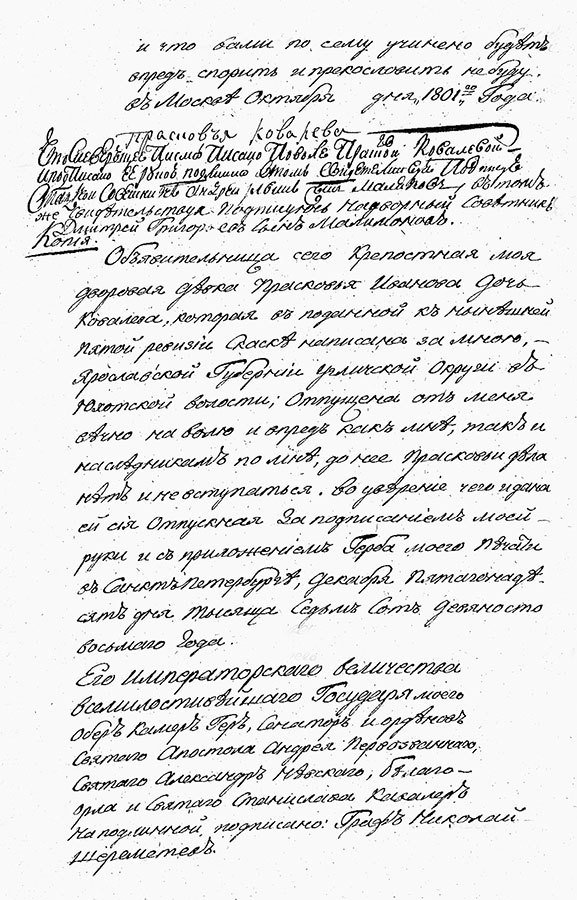 и что вами по сему учинено будетъ
впредь спорить и прекословить небуду.
въ Москвѣ Октября дня, 1801го Года.
Прасковья Ковалева
письмо писано Поволѣ Ковалевой
Андреи Малининъ
же свидѣтельствую Подписуюсь надворный Совѣтникъ
Дмитрей Григорьевъ сынъ Малимоновъ.
Копия.
Объявительница сего Крепостная моя
дворовая дѣвка Прасковья Иванова Дочь
Ковалева, которая въ поданной къ нынѣшней
пятой ревизіи Скаскѣ написана за мною, –
Ярославской Губерніи Угличской Округи въ
Юхотской волости; Отпущена отъ меня
вѣчно на волю и впредь какъ мнѣ, такъ и
наслѣдникамъ по мнѣ, до нее Прасковьи дѣла
нѣтъ и не вступаться. Во увѣрение чего и дана
ей сія Отпускная За подписаниемъ моей –
руки и съ приложениемъ Герба моего Печати
въ Санктъ Петербургѣ, Декабря Пятагонадѣ-
сять дня тысяща Седьмъ Сотъ девяносто
восьмаго Года.
Его императорского величества
всемилостивѣйшаго Государя моего
Оберъ Камеръ Геръ, Сенаторъ и орденовъ
Святаго Апостола Андрея Первозваннаго,
Святаго Александръ Нѣвскаго, бѣлаго –
орла и Святаго Станислава Кавалеръ
на подлинной подписано: Графъ Николай
Шереметевъ.